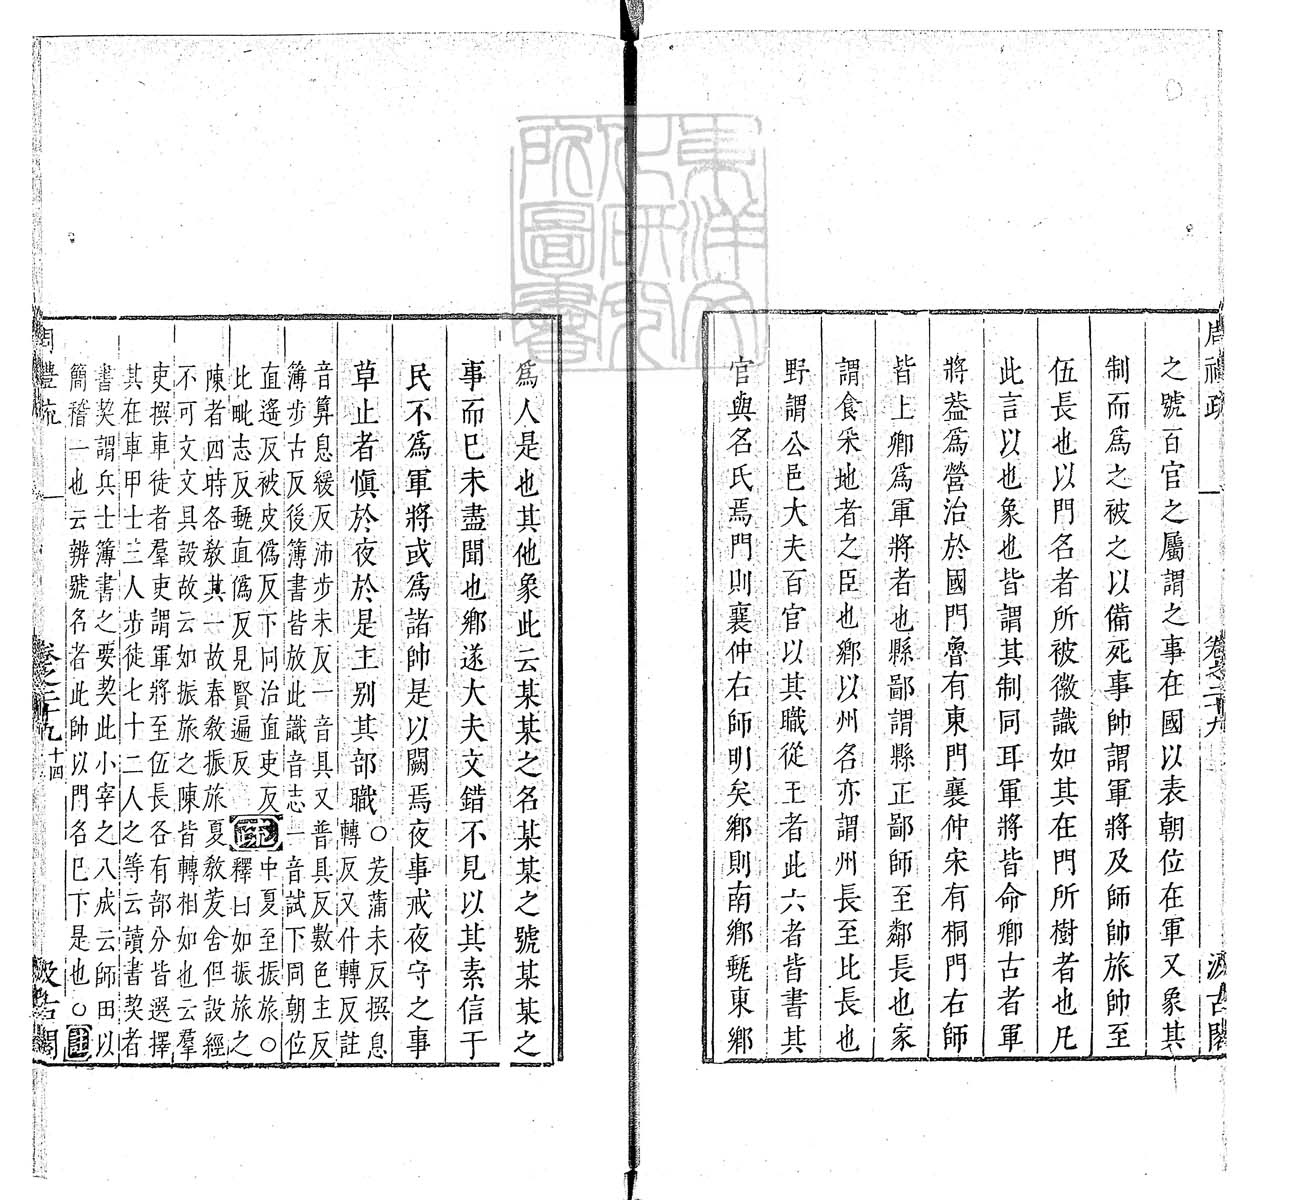 周禮疏 卷之二十九 汲古閣
之號百官之屬謂之事在國以表朝位在軍又象其
制而爲之被之以備死事帥謂軍將及師帥旅帥至
伍長也以門名者所被徽識如其在門所樹者也凡
此言以也象也皆謂其制同耳軍將皆命卿古者軍
將葢爲營治於國門魯有東門襄仲宋有桐門右師
皆上卿爲軍將者也縣鄙謂縣正鄙師至鄰長也家
謂食采地者之臣也鄉以州名亦謂州長至比長也
野謂公邑大夫百官以其職從王者此六者皆書其
官與名氏焉門則襄仲右師明矣鄉則南鄉甀東鄉
爲人是也其他象此云某某之名某某之號某某之
事而已未盡聞也鄉遂大夫文錯不見以其素信于
民不爲軍將或爲諸帥是以闕焉夜事戒夜守之事
草止者愼於夜於是主别其部職○茇蒲未反撰息
轉反又什轉反註
音算息緩反沛步未反一音具又普具反數色主反
簿步古反後簿書皆放此識音志一音試下同朝位
直遙反被皮僞反下同治直吏反中夏至振旅○
比毗志反甀直僞反見賢遍反疏釋曰如振旅之
陳者四時各敎其一故春敎振旅夏敎茇舍但設經
不可文文具設故云如振旅之陳皆轉相如也云羣
吏撰車徒者羣吏謂軍將至伍長各有部分皆選擇
其在車甲士三人步徒七十二人之等云讀書契者
書契謂兵士簿書之要契此小宰之八成云師田以
簡稽一也云辨號名者此師以門名已下是也○註
周禮疏 卷之二十九 十四 汲古閣
東洋文化研究所圖書